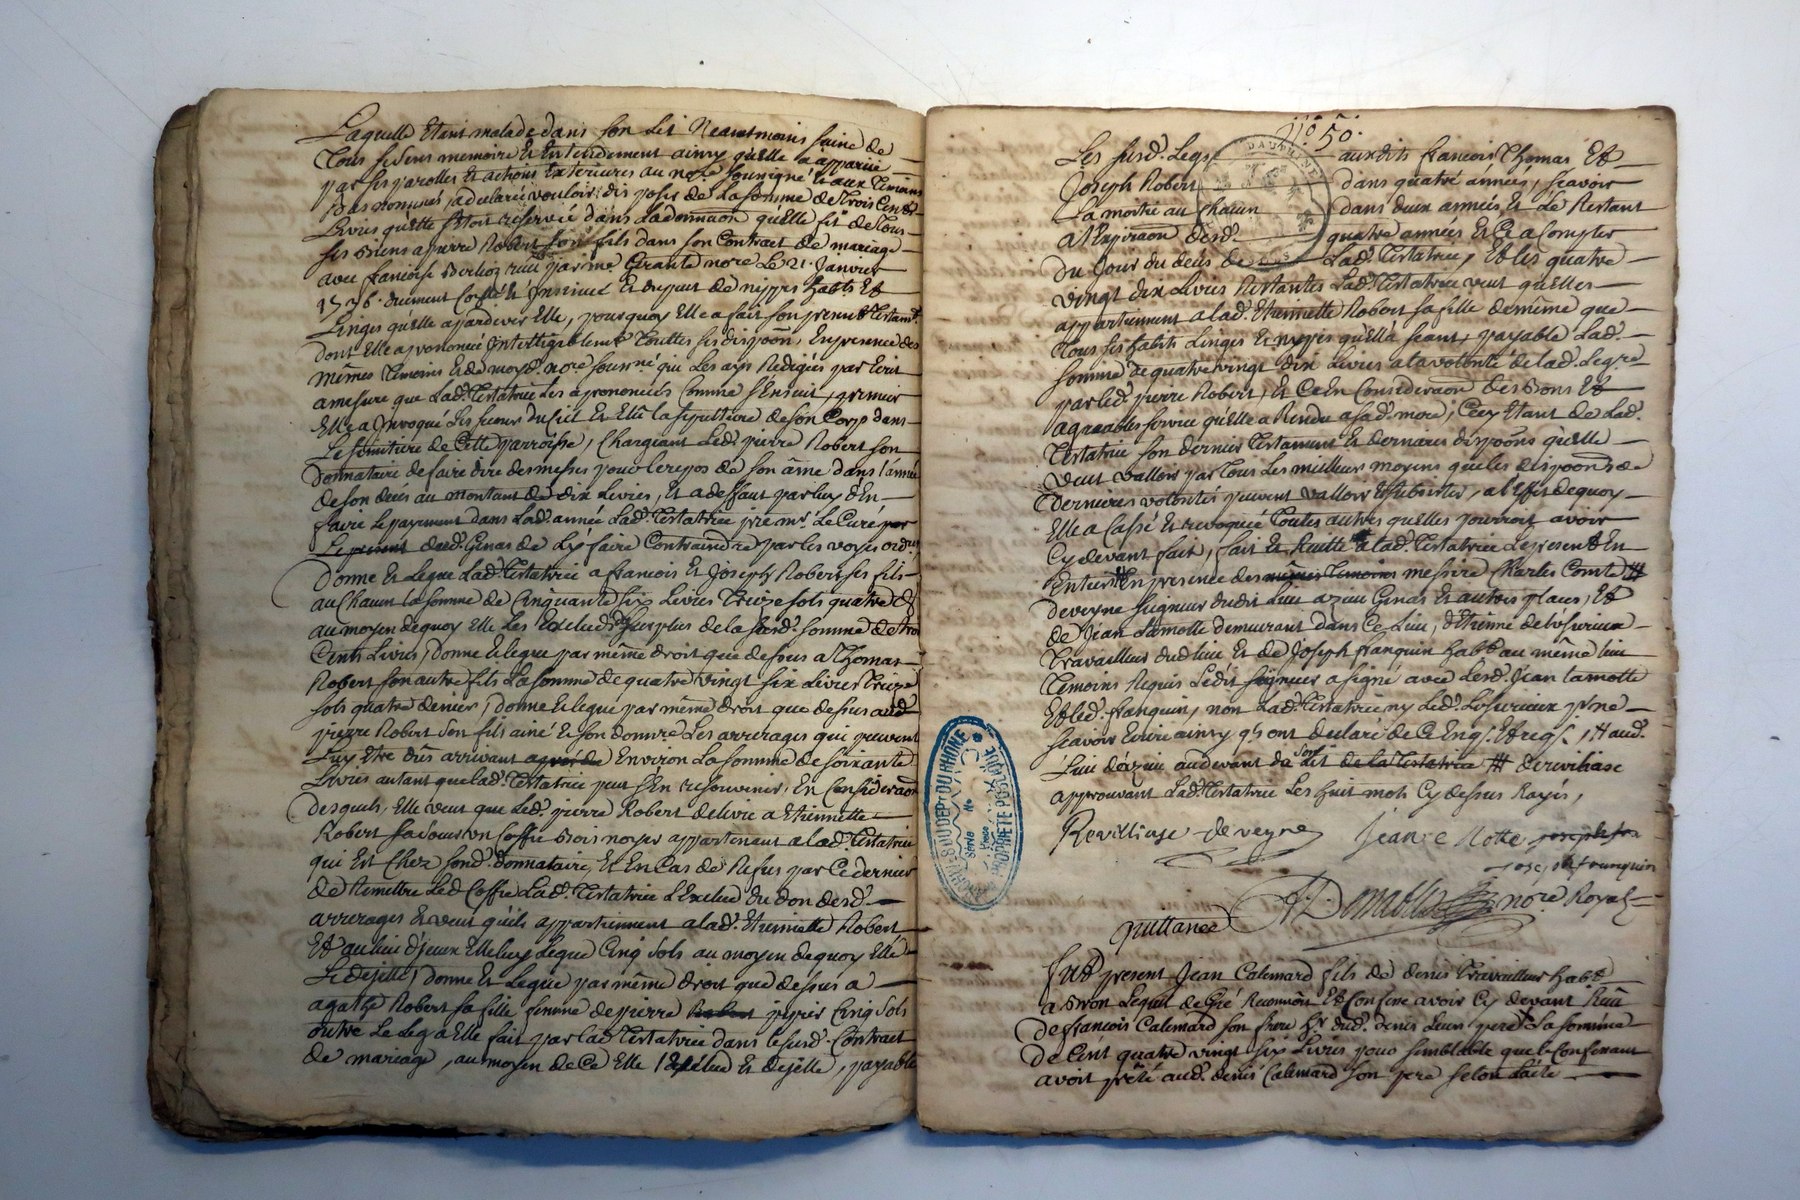 Laquelle Etant malade dans son Lit Neantmoins saine de
Tous ses sens memoire Et Entendement ainsy qu'elle a apparüe
par ses parolles Et actions Extérieures au no.re soussigné Et aux Temoins
Bas nommés, a declaré vouloir disposer de La somme de Trois Cents
Livres qu'elle s'étoit reservée dans La donnaôn qu'Elle fit de Tous
ses Biens a pierre Robert son fils dans son Contract de mariage
avec françoise Berlioz receu par me. Girante no.re Le 21. Janvier
1736. düement Collé Et Insinué Et du peut de nippes habits Et
Linges qu'elle a pardevers Elle, pourquoy Elle a fait son present Testamt.
dont Elle a prononcé Intelligiblemt Touttes ses dispoôns, En presence des
mêmes Temoins Et de moyd. no.re soussné qui Les ays Redigées par Ecrit
a mesure que Lad. Testatrice Les a prononcés Comme s'Ensuit, premier
Elle a Invoqué Les secours du Ciel Et Elu la sepulture de son Corps dans
Le simitiere de Cette parroisse, Chargeant Led. pierre Robert son
donnataire de faire dire des messes pour le repos de son âme dans l'année
de son deces au montant de dix Livres, Et a deffaut par luy d'En
faire Le payement dans Lad. année Lad. Testatrice prie mr. Le Curé
dud. Genas de Ly faire Contraindre par les voyes ordres
donne Et Legue Lad. Testatrice a francois Et Joseph Robert ses fils
au Chacun la somme de Cinquante six Livres Treize sols quatre d.
au moyen dequoy Elle Les Exclud du surplus de la susd. somme de Trois
Cents Livres, donne Et legue par même droit que dessus a Thomas
Robert son autre fils La somme de quatre vingt six Livres Treize
sols quatre deniers, donne Et legue par même droit que dessus aud.
pierre Robert son fils ainé Et son donnre Les arrerages qui peuvent
Luy Etre dûs arrivant Environ La somme de soixante
Livres autant que lad. Testatrice peut s'En resouvenir, En Consideraôn
desquels, Elle veut que Led. pierre Robert delivre a Etiennette
Robert sa sœur un Coffre Bois noyer appartenant a lad. Testatrice
qui Est Chez sond. donnataire, Et En Cas de Refus par Ce dernier
de Remettre Led Coffre Lad. Testatrice L'Exclud du don desd.
arrerages Et veut qu'ils appartiennent a lad. Etiennette Robert
Et au lieu d'jceux Elle luy Legue Cinq sols au moyen dequoy Elle
Le dejette, donne Et Legue par même droit que dessus a
agathe Robert sa fille femme de pierre pipier Cinq sols
outre Le Legs a Elle fait par lad Testatrice dans le susd. Contract
de mariage, au moyen de Ce Elle l'Exclud Et dejette, payable
n.° 50.
Les susd. Legs auxdits francois Thomas Et
Joseph Robert dans quatre années, scavoir
La moitié au Chacun dans deux années Et Le Restant
a l'Expiraôn desd. quatre années Et Ce a Compter
du Jour du deces de Lad. Testatrice, Et les quatre
vingt dix Livres Restantes Lad. Testatrice veut qu'elles
appartiennent a lad. Etiennette Robert sa fille de même que
Tous ses habits Linges Et nippes qu'Elle a seant, payable Lad.
somme de quatre vingt dix Livres a la volonté de lad. Leg.re
par led. pierre Robert, Et Ce En Consideraôn des Bons Et
agreables service qu'Elle a Rendu a sad. mere; Cecy Etant de Lad.
Testatrice son dernier Testament Et derniere dispoôns qu'elle
veut valloir par Tous Les meilleur moyens que les dispoôns de
dernieres volontés peuvent valloir Et subsister, a l'Effet dequoy
Elle a Cassé Et revoqué Toutes autres qu'elles pourroit avoir
Cy devant fait, fait Et Recitté a lad. Testatrice Le present En
Entier En presence des mêmes Temoins messire Charles Comte #
deveyne seigneur dudit lieu azieu Genas Et autres places, Et
de Jean Lamotte demeurant dans Ce Lieu, d'Etienne de Losurieux
travailleur dud lieu Et de Joseph franquin habt. au même lieu
Temoins Requis Ledit seigneur a signé avec Lesd. Jean Lamotte
Et led. franquin, non Lad. Testatrice ny Led. Losurieux pr. ne
scavoir Ecrire ainsy qls ont declaré de Ce Enqs. Et reqs. # aud.
Lieu d'azieu audevant du Lit de la Testatrice # de reviliasc
approuvant Lad. Testatrice Les huit mots Cy dessus Rayés,
Reviliasc - deveyne Jean e Motte
joseph franquin
Demolle no.re Royal
quittance
Fut present Jean Calemard fils de denis Travailleur habt.
a Bron Lequel de Gré Reconnoit Et Confesse avoir Cy devant Receu
de françois Calemard son frere hr. dud. denis Leur pere La somme
de Cent quatre vingt six Livres pour semblable que le Confessant
avoit prêté aud. denis Calemard son pere selon L'acte
DAUPHINE
ARCHIVES DU DEPT DU RHONE
Série No
PROPRIETE PUBLIQUE